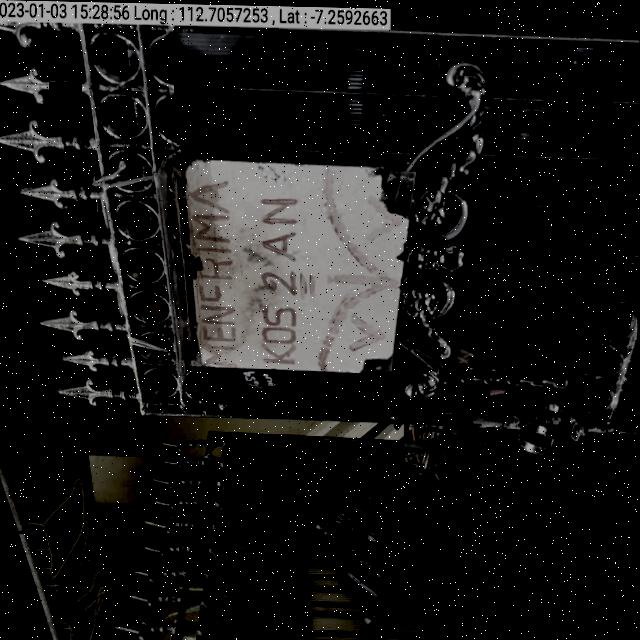 023-01-03 15:28:56 Long : 112.7057253, Lat : -7.2592663
MENERIMA
KOS2AN